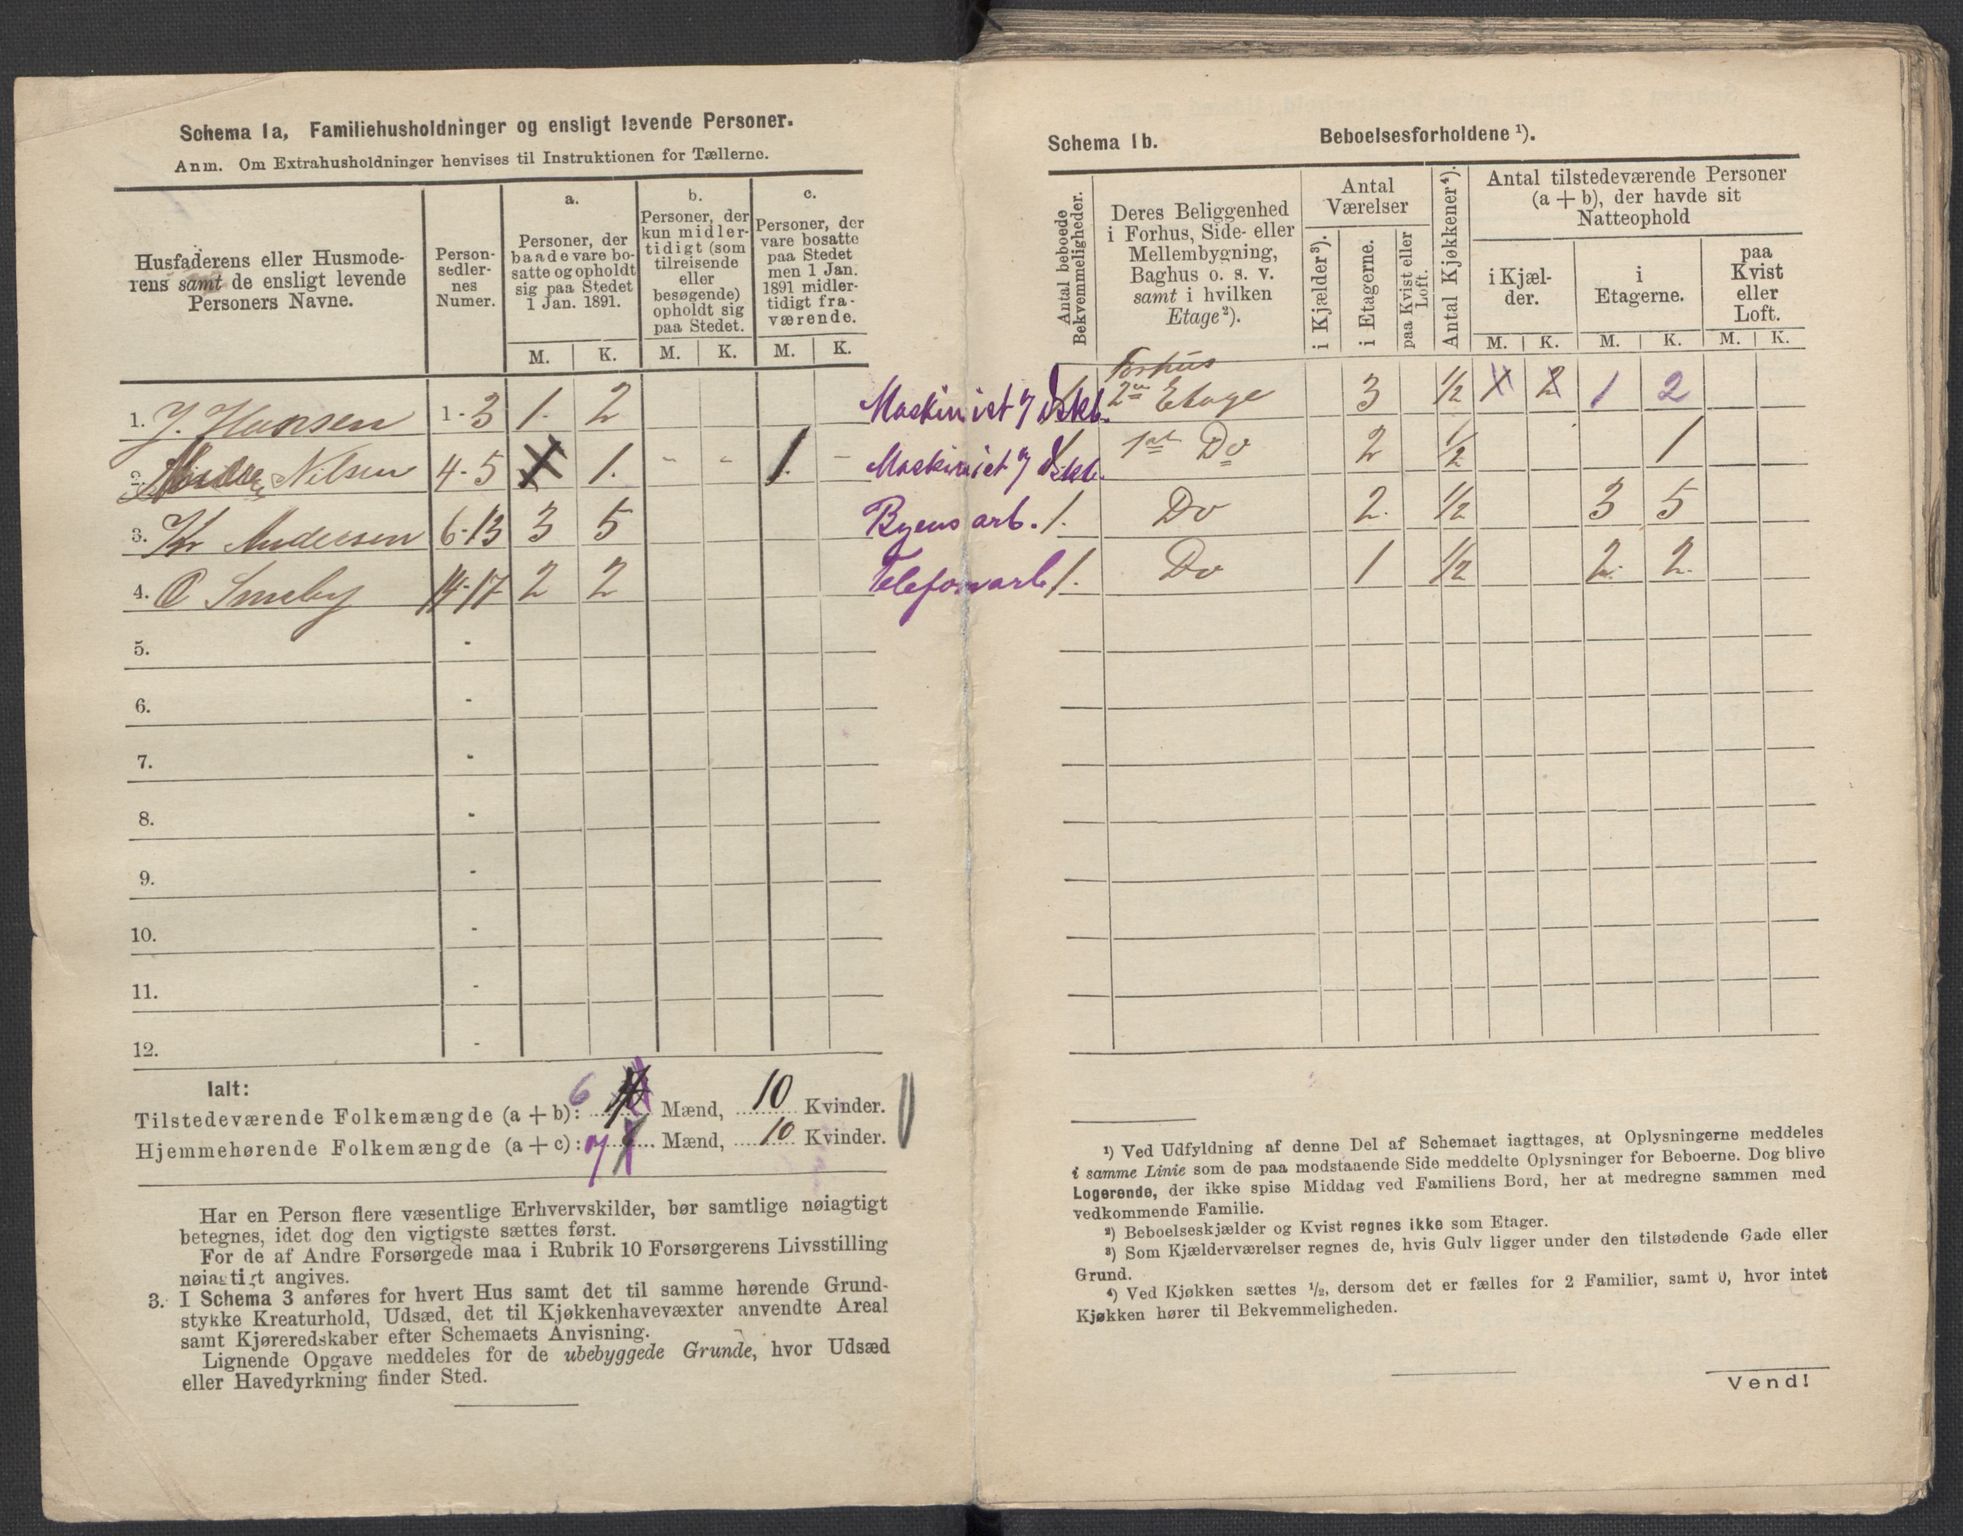 Schema 1a, Familiehusholdninger og ensligt levende Personer.
Anm. Om Extrahusholdninger henvises til Instruktionen for Tællerne.
Husfaderens eller Husmode-
rens samt de ensligt levende
Personers Navne.
Person-
sedler-
nes
Numer.
a.
Personer, der
baade vare bo-
satte og opholdt
sig paa Stedet
1 Jan. 1891.
b.
Personer, der
kun midler-
tidigt (som
tilreisende
eller
besøgende)
opholdt sig
paa Stedet.
c.
Personer, der
vare bosatte
paa Stedet
men 1 Jan.
1891 midler-
tidigt fra-
værende.
M. K. M. K. M. K.
1. J. Hansen 1-3 1. 2
2. Nilsen 4-5 1. - - 1. -
3. Kr Andersen 6-13 3 5
4. O Smeby 14-17 2 2
5. -
6. -
7. -
8. -
9. -
10. -
11. -
12. -
Ialt:
Tilstedeværende Folkemængde (a + b): 6 Mænd, 10 Kvinder.
Hjemmehørende Folkemængde (a + c): 7 Mænd, 10 Kvinder.
Har en Person flere væsentlige Erhvervskilder, bør samtlige nøiagtigt
betegnes, idet dog den vigtigste sættes først.
For de af Andre Forsørgede maa i Rubrik 10 Forsørgerens Livsstilling
nøiagtigt angives.
3. I Schema 3 anføres for hvert Hus samt det til samme hørende Grund-
stykke Kreaturhold, Udsæd, det til Kjøkkenhavevæxter anvendte Areal
samt Kjøreredskaber efter Schemaets Anvisning.
Lignende Opgave meddeles for de ubebyggede Grunde, hvor Udsæd
eller Havedyrkning finder Sted.
Schema 1b. Beboelsesforholdene ¹).
Antal beboede
Bekvemmeligheder.
Deres Beliggenhed
i Forhus, Side- eller
Mellembygning,
Baghus o. s. v.
samt i hvilken
Etage²).
Antal
Værelser
i Kjælder³).
i Etagerne.
paa Kvist eller
Loft.
Antal Kjøkkener⁴).
Antal tilstedeværende Personer
(a + b), der havde sit
Natteophold
i Kjæl-
der.
i
Etagerne.
paa
Kvist
eller
Loft.
M. K. M. K. M. K.
Forhus
Maskinist 1 2den Etage 3 ½ 1 2
Maskinist 1 1ste Do 2 ½ 1
Byens arb. 1. Do 2. ½ 3 5
Telefonarb 1. Do 1 ½ 2. 2.
¹) Ved Udfyldning af denne Del af Schemaet iagttages, at Oplysningerne meddeles
i samme Linie som de paa modstaaende Side meddelte Oplysninger for Beboerne. Dog blive
Logerende, der ikke spise Middag ved Familiens Bord, her at medregne sammen med
vedkommende Familie.
²) Beboelseskjælder og Kvist regnes ikke som Etager.
³) Som Kjælderværelser regnes de, hvis Gulv ligger under den tilstødende Gade eller
Grund.
⁴) Ved Kjøkken sættes ½, dersom det er fælles for 2 Familier, samt 0, hvor intet
Kjøkken hører til Bekvemmeligheden.
Vend!